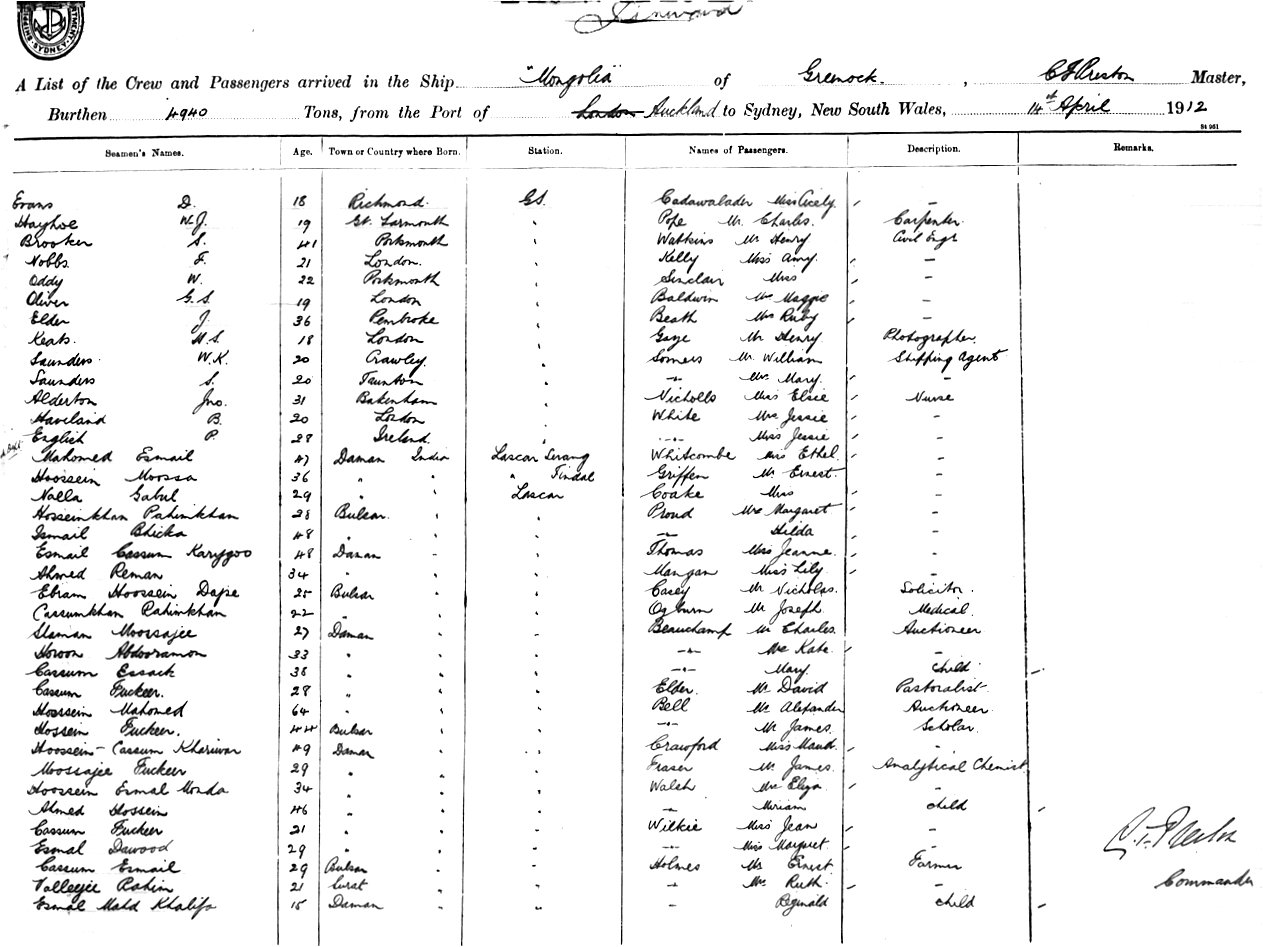 DEPARTMENT SHIPPING SYDNEY
A List of the Crew and Passengers arrived in the Ship "Mongolia" of Greenock, C F Preston Master,
Burthen 4940 Tons, from the Port of London Auckland to Sydney, New South Wales, 14th April 1912
St 961
Seamen's Names. Age. Town or Country where Born. Station. Names of Passengers. Description. Remarks.
Evans D. 18 Richmond. G.S. Cadawalader Miss Cicely -
Hayhoe W.J. 19 Gt. Yarmouth " Pope Mr. Charles. Carpenter
Brooker S. 41 Portsmouth " Watkins Mr Henry Civil Engr
Nobbs F. 21 London. " Kelly Miss Amy. -
Oddy W. 22 Portsmouth " Sinclair Miss -
Oliver G.S. 19 London " Baldwin Mrs Maggie -
Elder J. 36 Pembroke " Beath Mrs Ruby -
Keats. H.S. 18 London " Gaze Mr Henry Photographer
Saunders W.K. 20 Crawley. " Somers Mr. William Shipping Agent
Saunders S. 20 Taunton " -"- Mrs. Mary. -
Alderton Jno. 31 Bakenham " Nicholls Miss Elsie Nurse
Haviland B. 20 London " White Mrs Jessie -
English P. 28 Ireland. " -"- Miss Jessie -
Mahomed Esmail 47 Daman India Lascar Serang Whitcombe Miss Ethel -
Hoossein Moossa 36 " " " Tindal Griffen Mr Ernest. -
Nalla Gabul 29 " " Lascar Coake Miss -
Hosseinkhan Pahimkhan 28 Bulsar. " " Proud Mrs Margaret -
Ismail Bhicka 48 " " " -"- Hilda -
Esmail Cassum Karygoo 48 Daman " " Thomas Miss Jeanne. -
Ahmed Reman 34 " " " Mangan Miss Lily. -
Ebram Hoossein Dajee 25 Bulsar " " Casey Mr Nicholas. Solicitor.
Cassumkhan Rahimkhan 22 " " " Ogburn Mr Joseph Medical.
Slaman Moossajee 27 Daman " " Beauchamp Mr Charles. Auctioneer
Howon Abdooramon 33 " " " -"- Mrs Kate. -
Cassum Essack 38 " " " -"- Mary. child
Cassum Fuckeer. 28 " " " Elder. Mr David Pastoralist
Hossein Mahomed 64 " " " Bell Mr Alexander Auctioneer
Hossein Fuckeer. 44 Bulsar " " -"- Mr James. Scholar.
Hoossein-Cassum Khariwar 49 Daman " " Crawford Miss Maud. -
Moossajee Fuckeer 29 " " " Fraser Mr James. Analytical Chemist
Hoossein Esmal Monda 34 " " " Walsh Mrs Eliza. -
Ahmed Hossein 46 " " " -"- Miriam child
Cassum Fuckeer 21 " " " Wilkie Miss Jean -
Esmal Dawood 29 " " " -"- Miss Margaret. -
Cassum Esmail 29 Bulsar " " Holmes Mr Ernest Farmer
Valleejee Rahim 21 Surat " " -"- Mrs Ruth. -
Esmal Mahd Khalifa 15 Daman " " - Reginald child
C. F. Preston
Commander